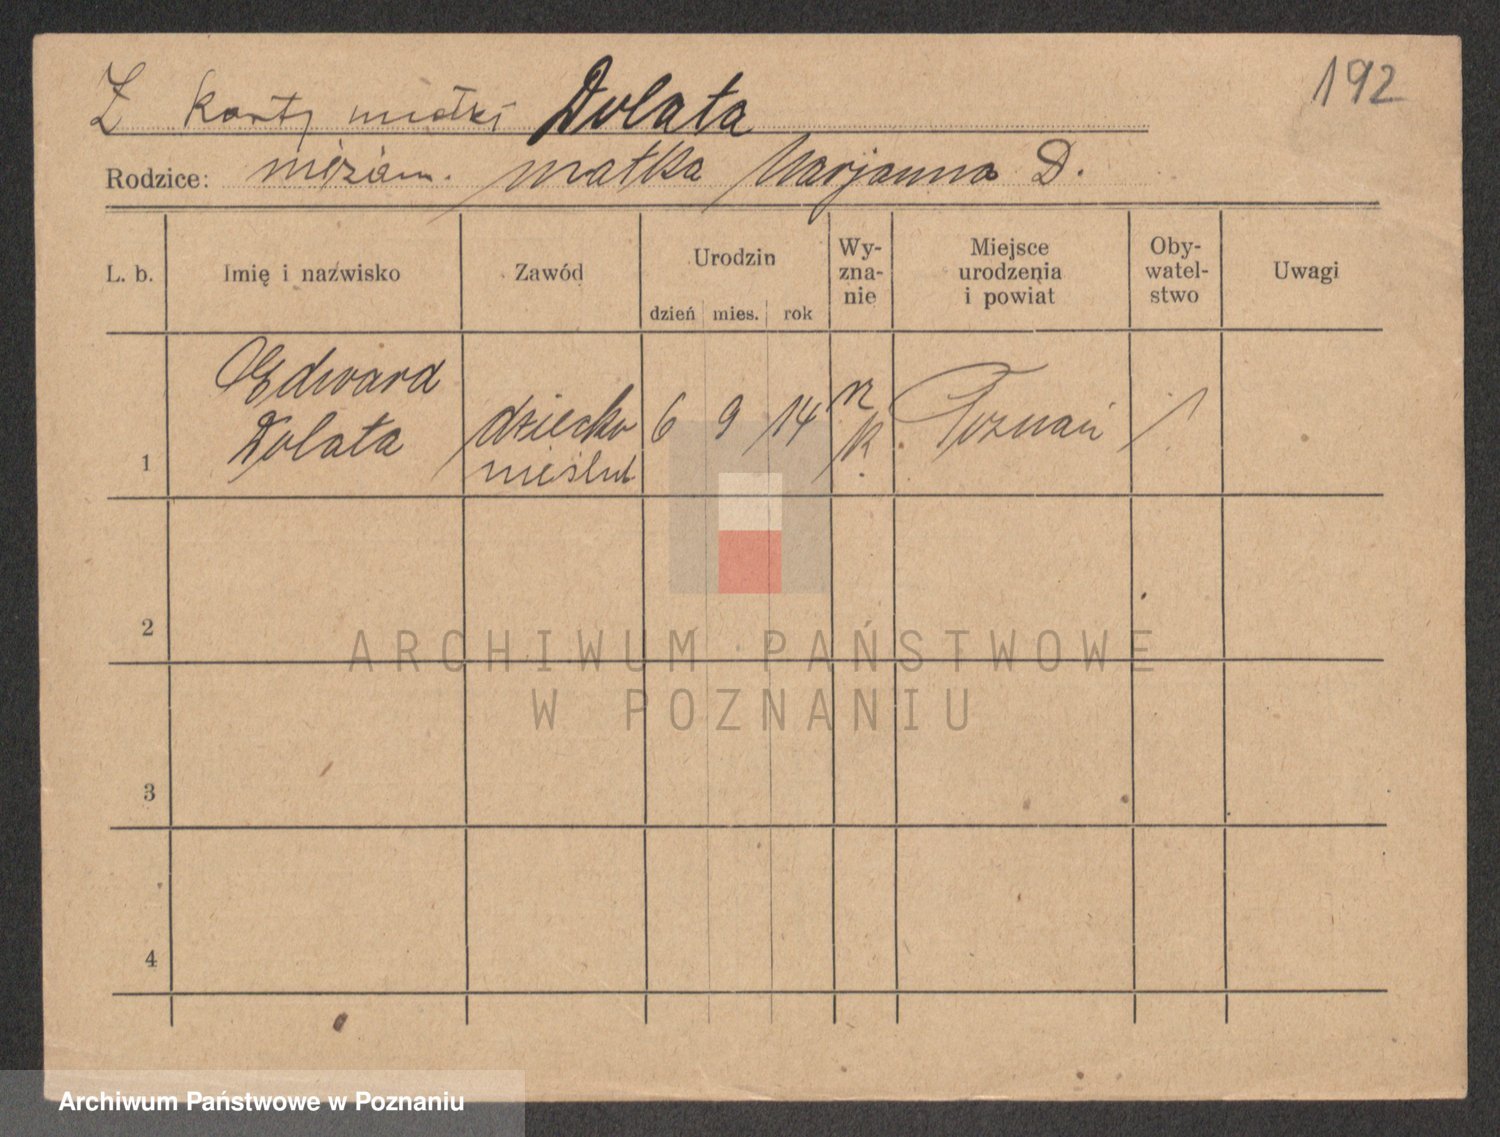 192
Z karty matki Dolata
Rodzice: niezam. matka Marjanna D.
L. b.
Imię i nazwisko
Zawód
Urodzin
dzień mies. rok
Wy-
zna-
nie
Miejsce
urodzenia
i powiat
Oby-
watel-
stwo
Uwagi
1
Edward
Dolata
dziecko
nieślub
6 9 14
rz
k.
Poznań
2
3
4
ARCHIWUM PAŃSTWOWE
W POZNANIU
Archiwum Państwowe w Poznaniu